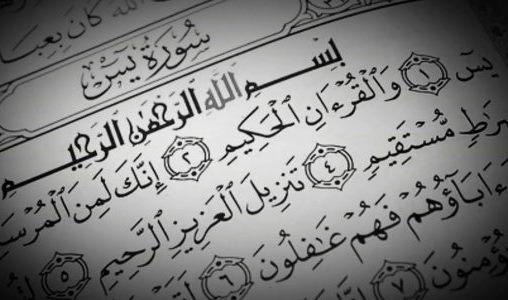 الله كان بعبا
سُورَةُ يسٓ
بِسْمِ ٱللَّهِ ٱلرَّحْمَٰنِ ٱلرَّحِيمِ
يسٓ ١ وَٱلْقُرْءَانِ ٱلْحَكِيمِ ٢ إِنَّكَ لَمِنَ ٱلْمُرْسَ
رَٰطٍ مُّسْتَقِيمٍ ٤ تَنزِيلَ ٱلْعَزِيزِ ٱلرَّحِيمِ ٥
ءَابَآؤُهُمْ فَهُمْ غَٰفِلُونَ ٦ لَقَدْ
ؤْمِنُونَ ٧